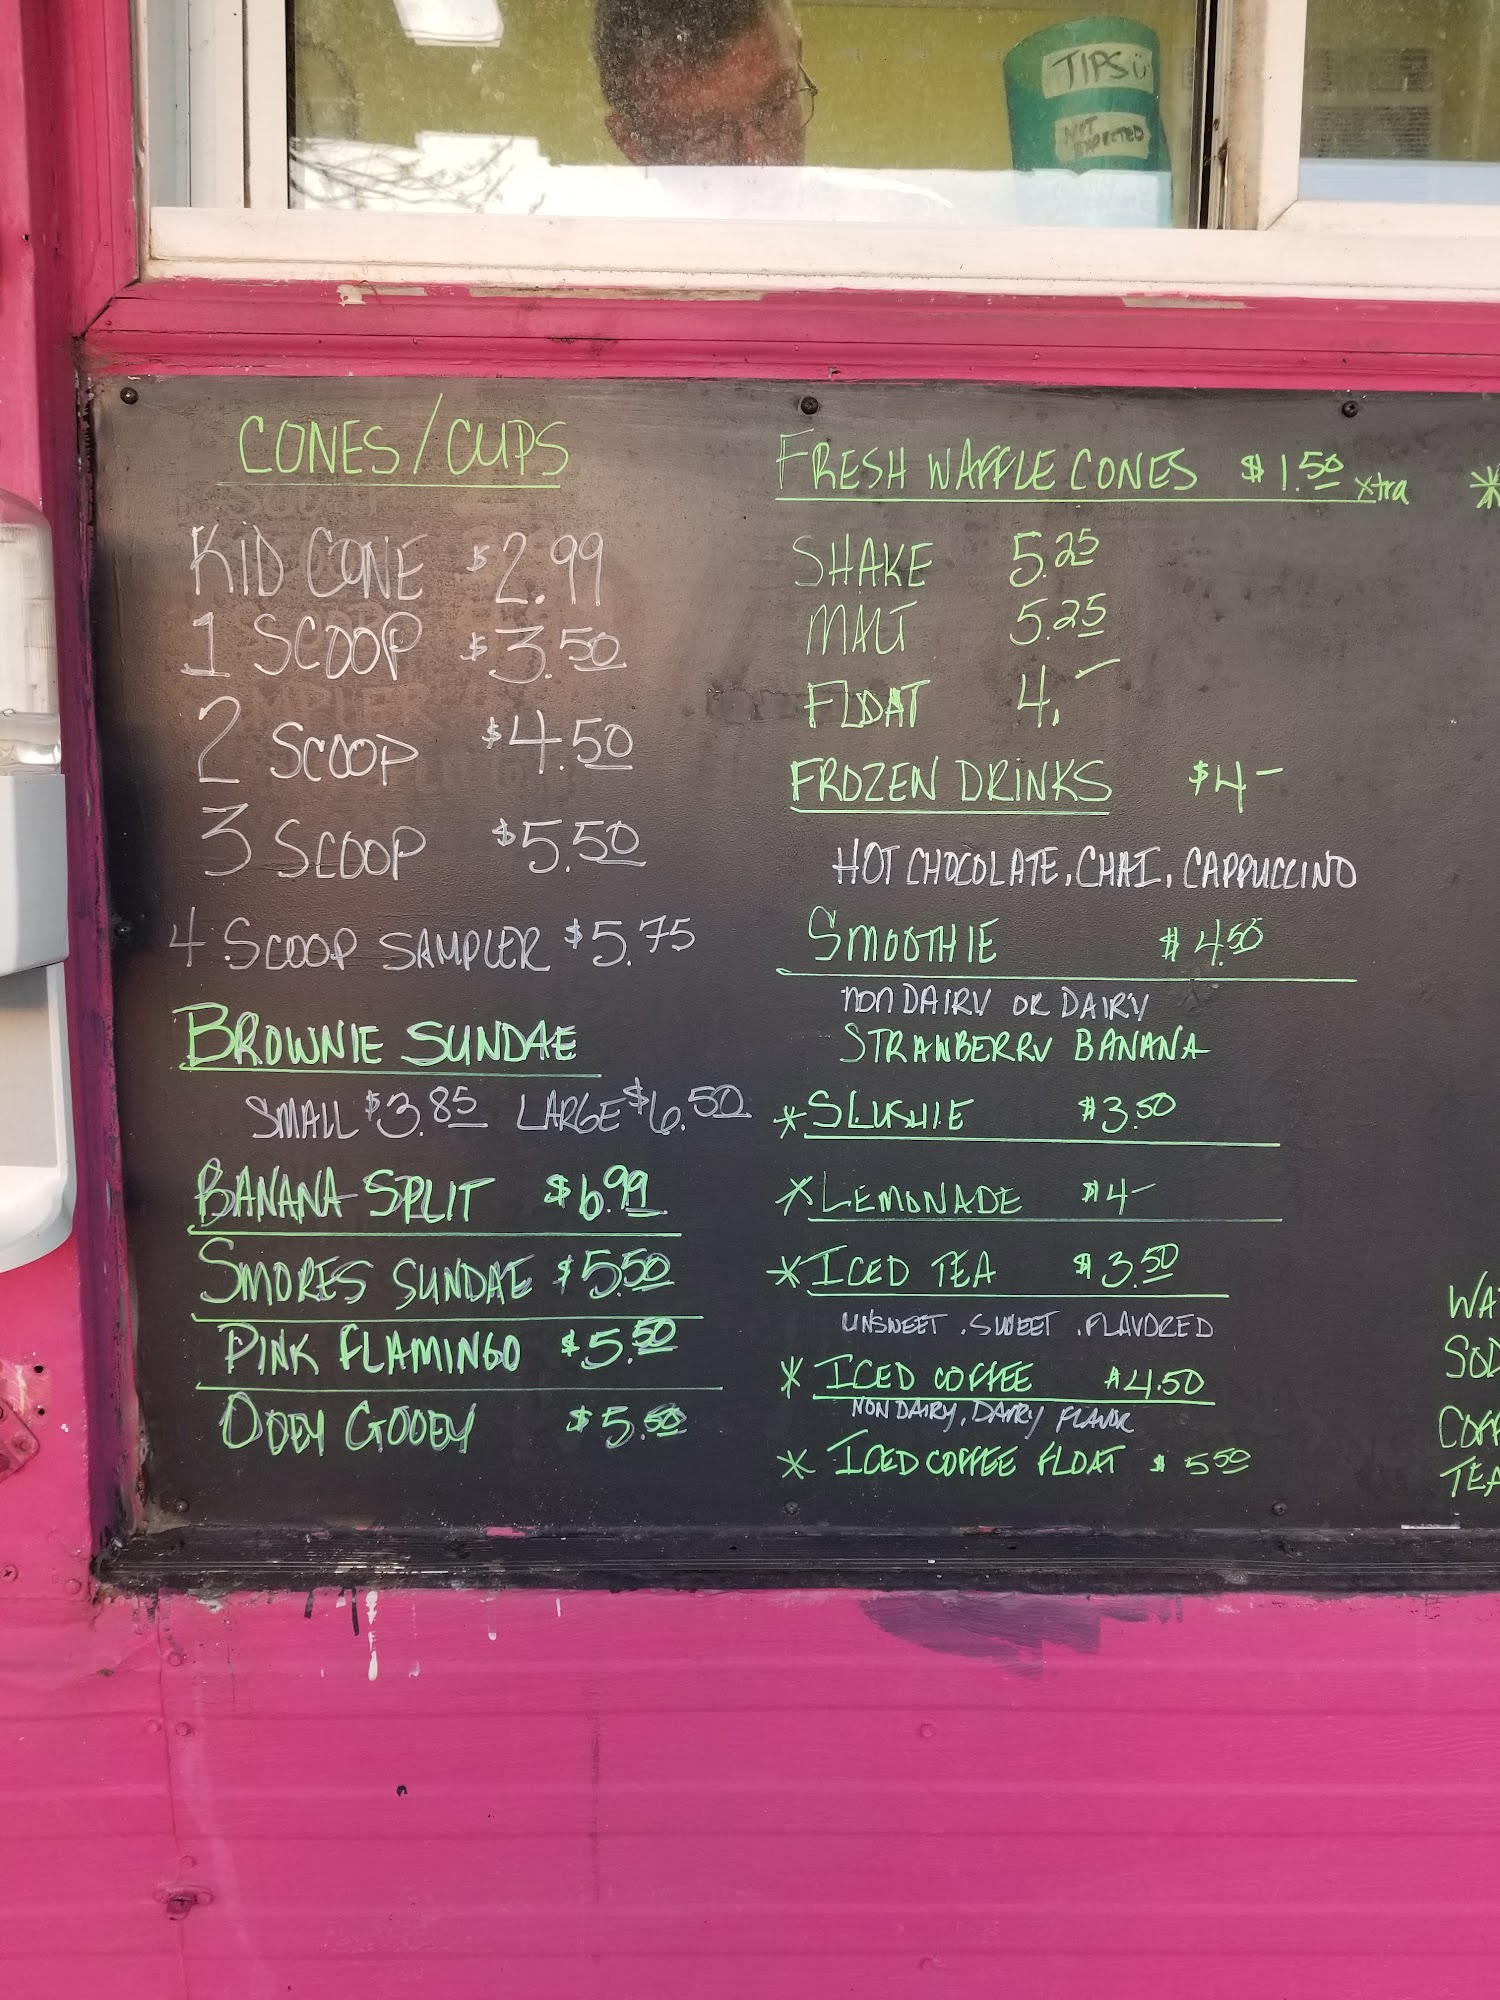 TIPS ü
NOT
EXPECTED
CONES/CUPS
KID CONE $2.99
1 SCOOP $3.50
2 SCOOP $4.50
3 SCOOP $5.50
4 SCOOP SAMPLER $5.75
BROWNIE SUNDAE
SMALL $3.85 LARGE $6.50
BANANA SPLIT $6.99
SMORES SUNDAE $5.50
PINK FLAMINGO $5.50
OOEY GOOEY $5.50
FRESH WAFFLE CONES $1.50 xtra *
SHAKE 5.25
MALT 5.25
FLOAT 4.-
FROZEN DRINKS $4-
HOT CHOCOLATE, CHAI, CAPPUCCINO
SMOOTHIE $4.50
NON DAIRY OR DAIRY
STRAWBERRY BANANA
*SLUSHIE $3.50
*LEMONADE $4-
*ICED TEA $3.50
UNSWEET . SWEET . FLAVORED
* ICED COFFEE $4.50
NON DAIRY, DAIRY FLAVOR
* ICED COFFEE FLOAT $5.50
WA
SOD
COFF
TEA